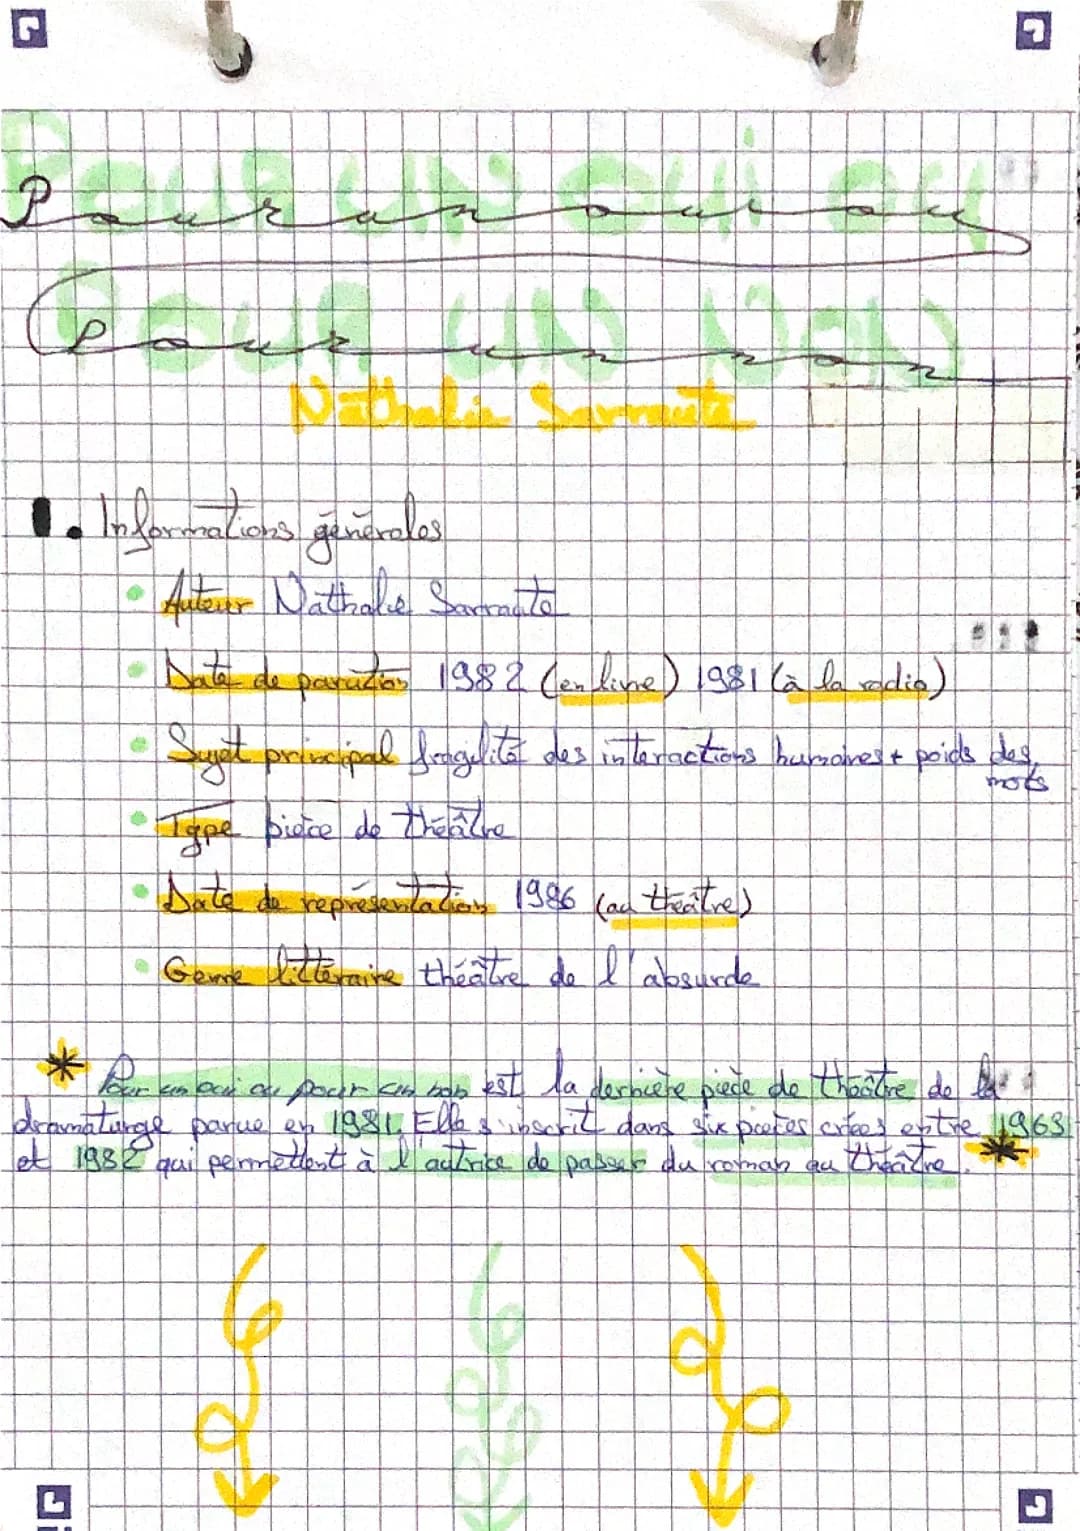 Pour un oui ou
Pour un non
Nathalie Sarraute
1. Informations générales
• Auteur Nathalie Sarraute
• Date de parution 1982 (en livre) 1981 (à la radio)
• Sujet principal fragilité des interactions humaines + poids des
mots
• Type pièce de théâtre
• Date de représentation 1986 (au théâtre)
• Genre littéraire théâtre de l'absurde
* Pour un oui ou pour un non est la dernière pièce de théâtre de la
dramaturge parue en 1981. Elle s'inscrit dans six pièces crées entre 1963
et 1982 qui permettent à l'autrice de passer du roman au théâtre. *